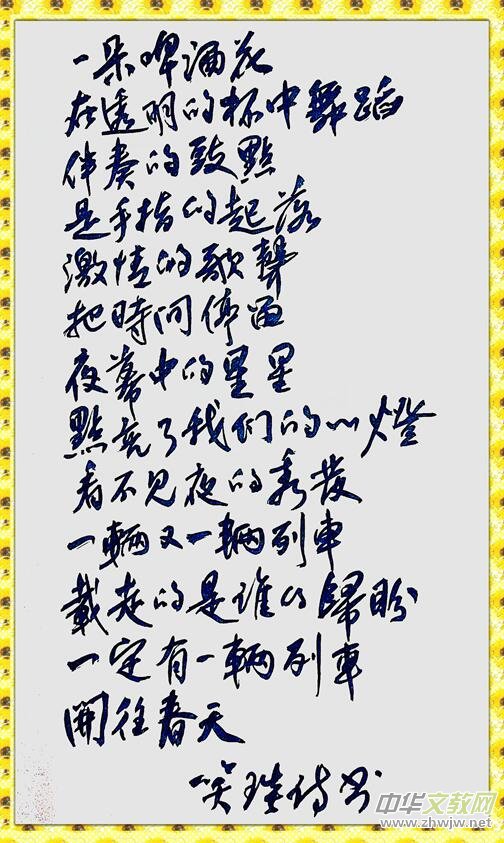 一朵啤酒花
在透明的杯中舞蹈
伴奏的鼓點
是手指的起落
激情的歌聲
把時间停留
夜幕中的星星
點亮了我们的心燈
看不见夜的秀发
一輛又一輛列車
載走的是谁的歸盼
一定有一輛列車
開往春天
诗书
中华文教网
www.zhwjw.net